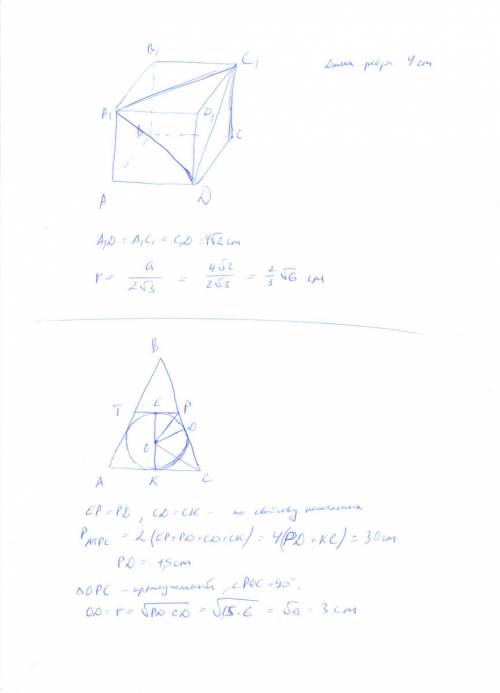 B₁
C₁
Длина ребра 4 cm
A₁
D₁
B
C
A
D
A₁D = A₁C₁ = C₁D = 4√2 cm
r = a / 2√3 = 4√2 / 2√3 = 2/3 √6 cm
B
T E P
D
O
A K C
EP = PD, CD = CK – по свойству касательных
P_ATPC = 2(EP+PD+CD+CK) = 4(PD+KC) = 30 cm
PD = 1,5 cm
△OPC – прямоугольный, ∠POC = 90°.
OD = r = √PD·CD = √1,5·6 = √9 = 3 cm